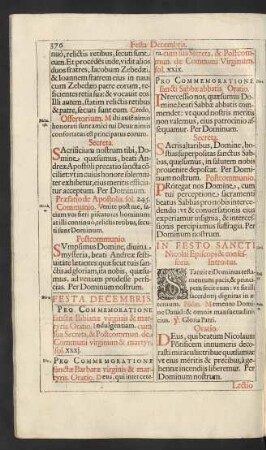 376 Festa Decembris.
nuò, relictis retibus, secuti sunt
eum. Et procédés inde, vidit alios
duos fratres, Iacobum Zebedæi,
& Ioannem fratrem eius in naui
cum Zebedæo patre eorum, re-
ficientes retia sua: & vocauit eos
Illi autem statim relictis retibus
& patre, secuti sunt eum. Credo.
Offertorium. Mihi autē nimis
honorati sunt amici tui Deus: nimis
confortatus est principatus eorum.
Secreta.
Sacrificium nostrum tibi,
Domine, quæsumus, beati An-
dreæ Apostoli precatio sancta cō-
ciliet: vt in cuius honore solemni-
ter exhibetur, eius meritis efficia-
tur acceptum. Per Dominum
Præfatio de Apostolis. fol. 245.
Communio. Venite post me, fa-
ciam vos fieri piscatores hominum:
at illi continuò, relictis retibus, secu-
ti sunt Dominum.
Postcommunio.
Sumpsimus Domine, diuina
mysteria, beati Andreæ festi-
uitate lætantes: quæ sicut tuis san-
ctis ad gloriam, ita nobis, quæsu-
mus, ad veniam prodesse perfi-
cias. Per Dominum nostrum.
FESTA DECEMBRIS.
Pro Commemoratione
sanctæ Bibianæ virginis & mar-
tyris. Oratio. Indulgentiam. cum
sua Secreta, & Postcommun. de
Communi virginum & martyr.
fol. xxxj.
Pro Commemoratione
sanctæ Barbaræ virginis & mar-
tyris. Oratio. Deus, qui inter cete-
ra. cum sua Secreta, & Postcommu-
nio. de Communi Virginum.
fol. xxix.
Pro Commemoratione
sancti Sabbæ abbatis. Oratio.
Intercessio nos, quæsumus, Do-
mine, beati Sabbæ abbatis com-
mendet: vt quod nostris meritis
non valemus, eius patrocinio
assequamur. Per Dominum.
Secreta.
Sacris altaribus, Domine, ho-
stias superpositas sanctus Sab-
bas, quæsumus, in salutem nobis
prouenire deposcat. Per Domi-
num nostrum.
Postcommunio.
Protegat nos Domine, cum
tui perceptione sacramenti
beatus Sabbas pro nobis interce-
dendo: vt & conuersationis eius
experiamur insignia, & interces-
sionis percipiamus suffragia. Per
Dominum nostrum.
IN FESTO SANCTI
Nicolai Episcopi & confes-
soris. Introitus.
Statuit ei Dominus testa-
mentum pacis, & prin-
cipem fecit eum: vt sit illi
sacerdotij dignitas in æ-
ternum. Psalm. Memento Domi-
ne Dauid: & omnis mansuetudinis
eius. ℣. Gloria Patri.
Oratio.
Deus, qui beatum Nicolaum
Pontificem innumeris deco-
rasti miraculis: tribue quæsumus:
vt eius meritis & precibus, à ge-
hennæ incendiis liberemur. Per
Dominum nostrum.
Lectio